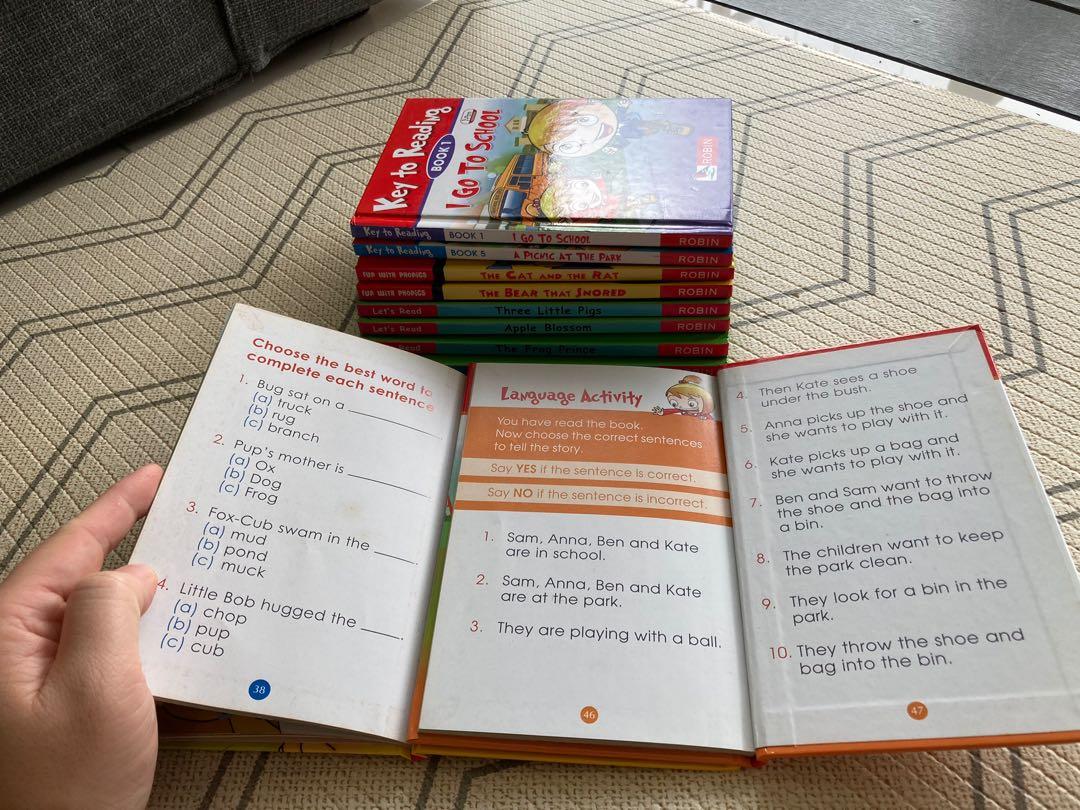 Key to Reading
BOOK 1
I GO TO SCHOOL
ROBIN
Key to Reading BOOK 1 I GO TO SCHOOL ROBIN
Key to Reading BOOK 5 A PICNIC AT THE PARK ROBIN
FUN WITH PHONICS THE CAT AND THE RAT ROBIN
FUN WITH PHONICS THE BEAR THAT SNORED ROBIN
Let's Read Three Little Pigs ROBIN
Let's Read Apple Blossom ROBIN
Read The Frog Prince ROBIN
Choose the best word to
complete each sentence
1. Bug sat on a
(a) truck
(b) rug
(c) branch
2. Pup's mother is
(a) Ox
(b) Dog
(c) Frog
3. Fox-Cub swam in the
(a) mud
(b) pond
(c) muck
4. Little Bob hugged the
(a) chop
(b) pup
(c) cub
38
Language Activity
You have read the book.
Now choose the correct sentences
to tell the story.
Say YES if the sentence is correct.
Say NO if the sentence is incorrect.
1. Sam, Anna, Ben and Kate
are in school.
2. Sam, Anna, Ben and Kate
are at the park.
3. They are playing with a ball.
46
4. Then Kate sees a shoe
under the bush.
5. Anna picks up the shoe and
she wants to play with it.
6. Kate picks up a bag and
she wants to play with it.
7. Ben and Sam want to throw
the shoe and the bag into
a bin.
8. The children want to keep
the park clean.
9. They look for a bin in the
park.
10. They throw the shoe and
bag into the bin.
47